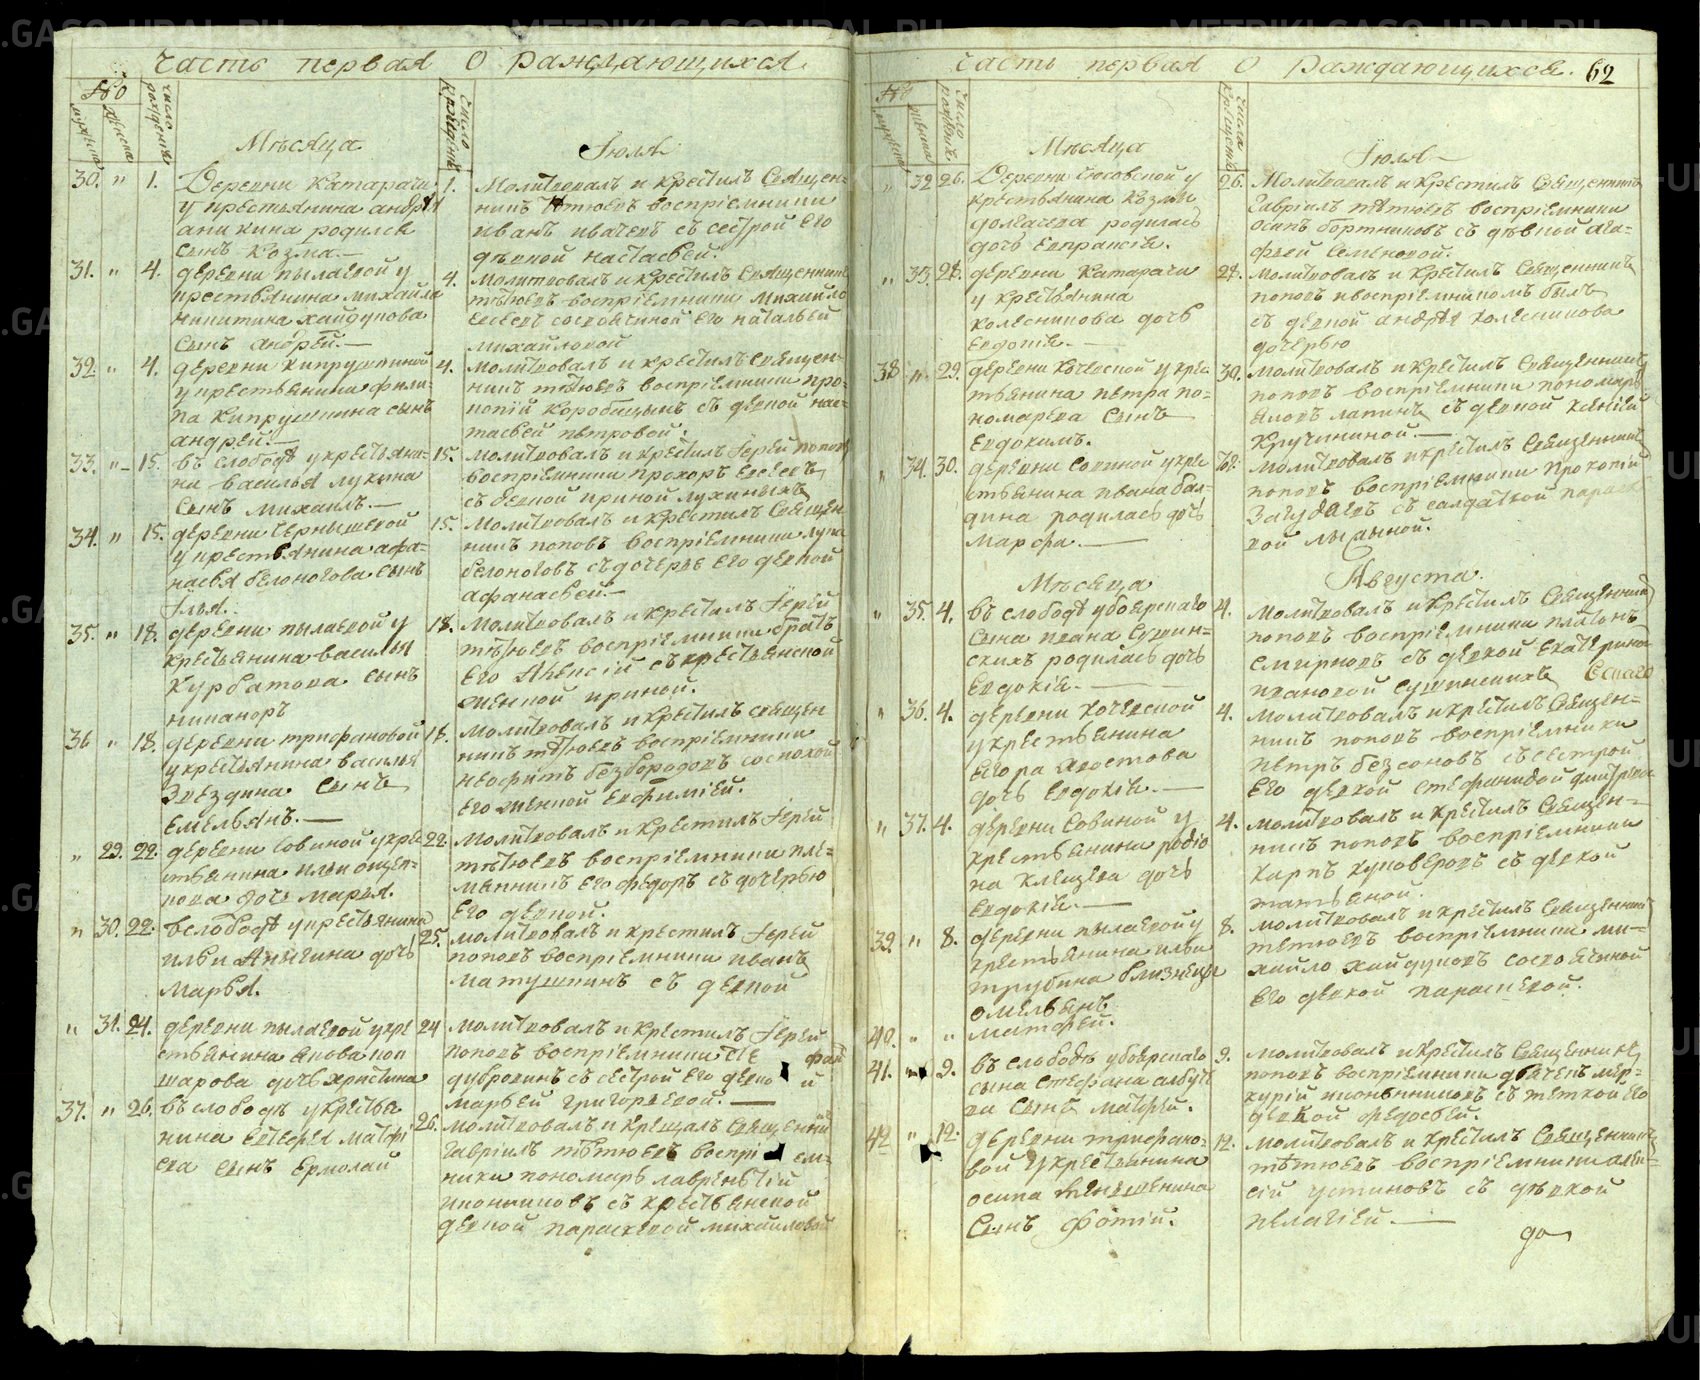 часть первая О раждающихся
№
мужеска
женска
число рождения
число крещения
Мѣсяца
Июля
30. " 1. Деревни Катарачи
у крестьянина андрея
аникина родился
сынъ козма.
1. Молитвовалъ и крестилъ священ-
никъ тѣтюевъ восприемники
иванъ ивачевъ съ сестрой его
дѣвкой настасьей.
31. " 4. деревни пылаевой у
крестьянина михайла
никитина хайдукова
сынъ андрей.
4. молитвовалъ и крестилъ священникъ
тѣтюевъ восприемники михайло
евсеевъ сосвоячиной его натальей
михайловой
32 " 4. деревни кипрушкиной
у крестьянина фили-
па кипрушкина сынъ
андрей.
4. молитвовалъ и крестилъ священ-
никъ тѣтюевъ восприемники про-
копий коробицынъ съ девкой нас-
тасьей петровой.
33. " 15. въ слободѣ у крестьяни-
на василья лукина
сынъ михаилъ.
15. молитвовалъ и крестилъ Иерей поповъ
восприемники прохоръ евсеевъ
съ девкой ириной лукиныхъ
34. " 15. деревни чернышевой
у крестьянина афа-
насья белоногова сынъ
Илья.
15. молитвовалъ и крестилъ священ
никъ поповъ восприемники лука
белоноговъ съ дочерью его девкой
афанасьей.
35. " 18. деревни пылаевой у
крестьянина василья
курбатова сынъ
никаноръ
18. молитвовалъ и крестилъ Иерей
тѣтюевъ восприемники братъ
его Алексий съ крестьянской
женкой ириной.
36 " 18. деревни трифановой
у крестьянина василья
Звездина сынъ
емельянъ.
18. молитвовалъ и крестилъ священ
никъ тѣтюевъ восприемники
неофитъ безбородовъ соснохой
его женкой евфимией.
" 29. 22. деревни совиной у крес
тьянина ильи ощеп-
кова дочь марья.
22. молитвовалъ и крестилъ Иерей
тѣтюевъ восприемники пле-
мянникъ его федоръ съ дочерью
его девкой.
" 30. 22. въ слободѣ у крестьянина
ильи Аникина дочь
марья.
25. молитвовалъ и крестилъ Иерей
поповъ восприемники иванъ
матушкинъ съ девкой
" 31. 24. деревни пылаевой у кре
стьянина якова коп
шарова дочь христина
24 молитвовалъ и крестилъ Иерей
поповъ восприемники сте фан
дубровинъ съ сестрой его девко й
марьей григорьевой.
37. " 26. въ слободѣ у крестья
нина евстефея матфи
ева сынъ Ермолай
26. молитвовалъ и крещалъ священникъ
гавриилъ тѣтюевъ воспри ем-
ники пономарь лаврентий
иконниковъ съ крестьянской
девкой параскевой михайловой
часть первая О раждающихся. 62
№
мужеска
женска
число рождения
число крещения
Мѣсяца
Июля
" 32 26. Деревни сосовской у
крестьянина козмы
долгасева родилась
дочь евпраксия.
26. Молитвовалъ и крестилъ священникъ
Гавриилъ тѣтюевъ восприемники
осипъ бортниковъ съ дѣвкой ага-
фьей семеновой.
" 33. 28. деревни катарачи
у крестьянина
колесникова дочь
евдокия.
28. молитвовалъ и крестилъ священникъ
поповъ и восприемникомъ былъ
съ девкой андрея колесникова
дочерью
38 " 29. деревни кочевской у крес
тьянина петра по-
номарева сынъ
евдокимъ.
30. молитвовалъ и крестилъ священникъ
поповъ восприемники пономарь
яковъ лапинъ съ девкой ксенией
кручининой.
" 34. 30. деревни совиной у кре
стьянина ивана бал-
дина родилась дочь
марфа.
30. молитвовалъ и крестилъ священникъ
поповъ восприемники прокопий
Загудаевъ съ салдаткой параске
вой лысыной.
Мѣсяца
Августа.
" 35. 4. въ слободѣ у боярского
сына ивана сушин-
скихъ родилась дочь
евдокия.
4. молитвовалъ и крестилъ священникъ
поповъ восприемники платонъ
смирновъ съ девкой екатерино
ивановой сушинскихъ
" 36. 4. деревни кочевской
у крестьянина
егора хвостова
дочь евдокия.
4. молитвовалъ и крестилъ священ-
никъ поповъ восприемники
петръ безсоновъ съ сестрой
его девкой стефанидой дмитриевой
" 37. 4. деревни совиной у
крестьянина родио
на клещева дочь
евдокия.
4. молитвовалъ и крестилъ священ-
никъ поповъ восприемники
карпъ куповеровъ съ девкой
татьяной.
39. " 8. деревни пылаевой у
крестьянина ильи
трубина близнецы
омельянъ
40. " " матфей.
8. молитвовалъ и крестилъ священникъ
тетюевъ восприемники ми-
хайло хайдуковъ сосвоячиной
его девкой параскевой.
41. " 9. въ слободѣ у боярского
сына стефана албыче
ва сынъ матфей.
9. молитвовалъ и крестилъ священникъ
поповъ восприемники дьячекъ мер-
курий иконниковъ съ теткой его
девкой федосьей.
42 " 12. деревни трифано-
вой у крестьянина
осипа меншенина
сынъ фотий.
12. молитвовалъ и крестилъ священникъ
тѣтюевъ восприемники алек-
сий устиновъ съ дѣвкой
пелагией.
до